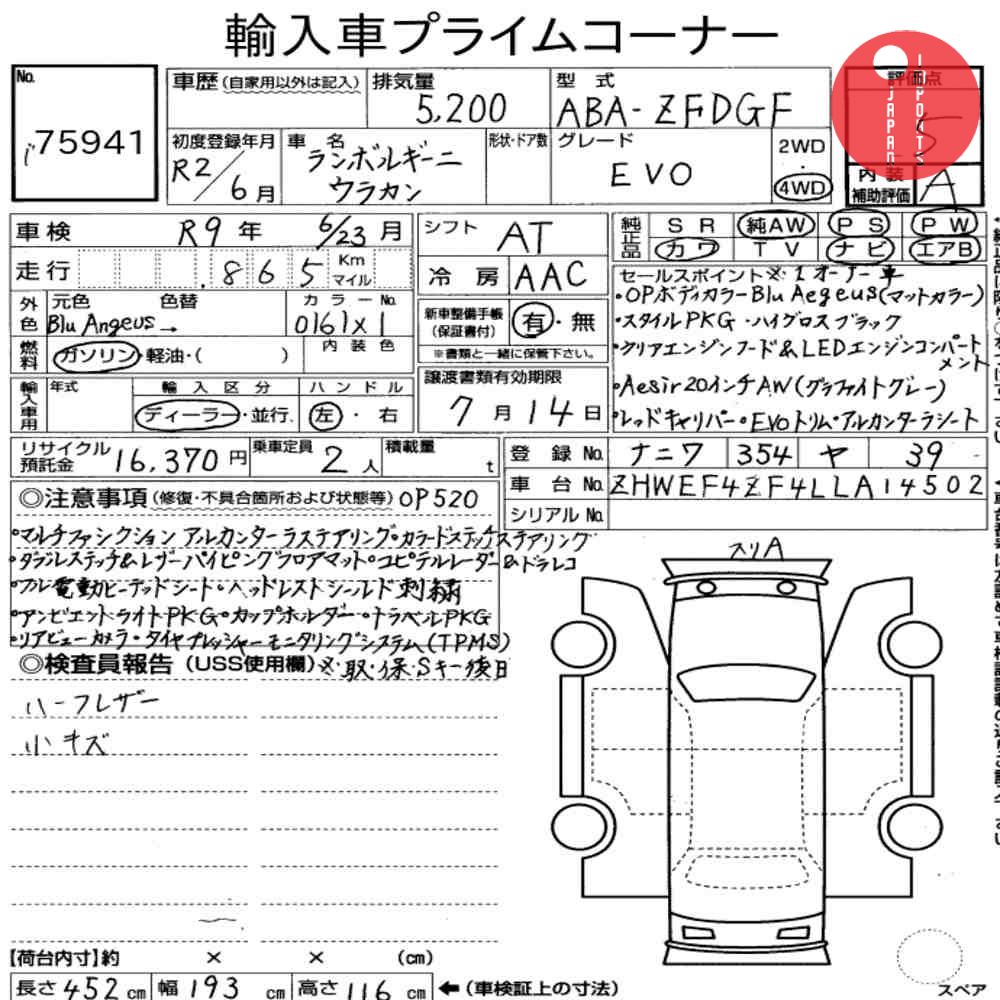 輸入車プライムコーナー
No.
75941
車歴(自家用以外は記入)
排気量
5,200
型 式
ABA-ZFDGF
評価点
5
JAPAN
IMPORTS
初度登録年月
R2/6月
車 名
ランボルギーニ
ウラカン
形状・ドア数
グレード
EVO
2WD
・
4WD
内 装
補助評価
A
車検 R9年 6/23月
走行 .865 Km マイル
シフト AT
冷 房 AAC
純正品 SR 純AW PS PW
カワ TV ナビ エアB
外色 元色 色替
Blu Angeus→
カラーNo.
0161×1
新車整備手帳
(保証書付)
有・無
※書類と一緒に保管下さい。
燃料 ガソリン・軽油・( )
内装色
セールスポイント※1オーナー車
・OPボディカラーBlu Aegeus(マットカラー)
・スタイルPKG・ハイグロスブラック
・クリアエンジンフード&LEDエンジンコンパート
メント
・Aesir20インチAW(グラファイトグレー)
・レッドキャリパー・EVOトリム・アルカンターラシート
輸入車用 年式
輸入区分
ディーラー・並行.
ハンドル
左・右
譲渡書類有効期限
7月14日
リサイクル
預託金 16,370円
乗車定員 2人
積載量 t
登 録 No. ナニワ 354 ヤ 39
車 台 No. ZHWEF4ZF4LLA14502
シリアル No.
◎注意事項(修復・不具合箇所および状態等)OP520
・マルチファンクション アルカンターラステアリング・カラードステッチステアリング
・ダブルステッチ&レザーパイピングフロアマット・ユピテルレーダー&ドラレコ
・フル電動ヒーテッドシート・ヘッドレストシールド刺繍
・アンビエントライトPKG・カップホルダー・トラベルPKG
・リアビューカメラ・タイヤプレッシャーモニタリングシステム(TPMS)
◎検査員報告(USS使用欄)※取・保・Sキー後日
ハーフレザー
小キズ
スリA
【荷台内寸】約 × × (cm)
長さ 452 cm 幅 193 cm 高さ 116 cm ←(車検証上の寸法)
スペア